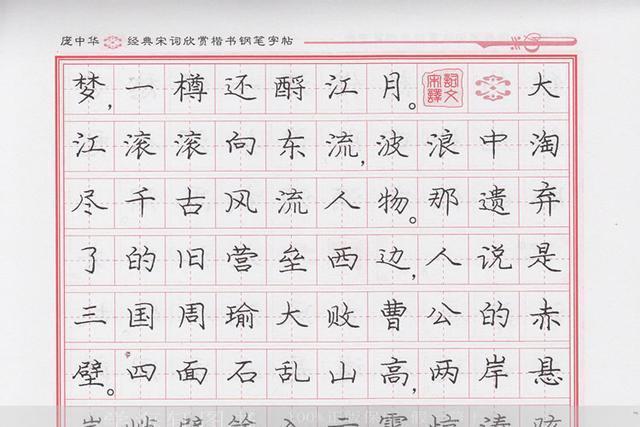 庞中华 经典宋词欣赏楷书钢笔字帖
梦，一樽还酹江月。 词文宋译 大
江滚滚向东流，波浪中淘
尽千古风流人物。那遗弃
了的旧营垒西边，人说是
三国周瑜大败曹公的赤
壁。四面石乱山高，两岸悬